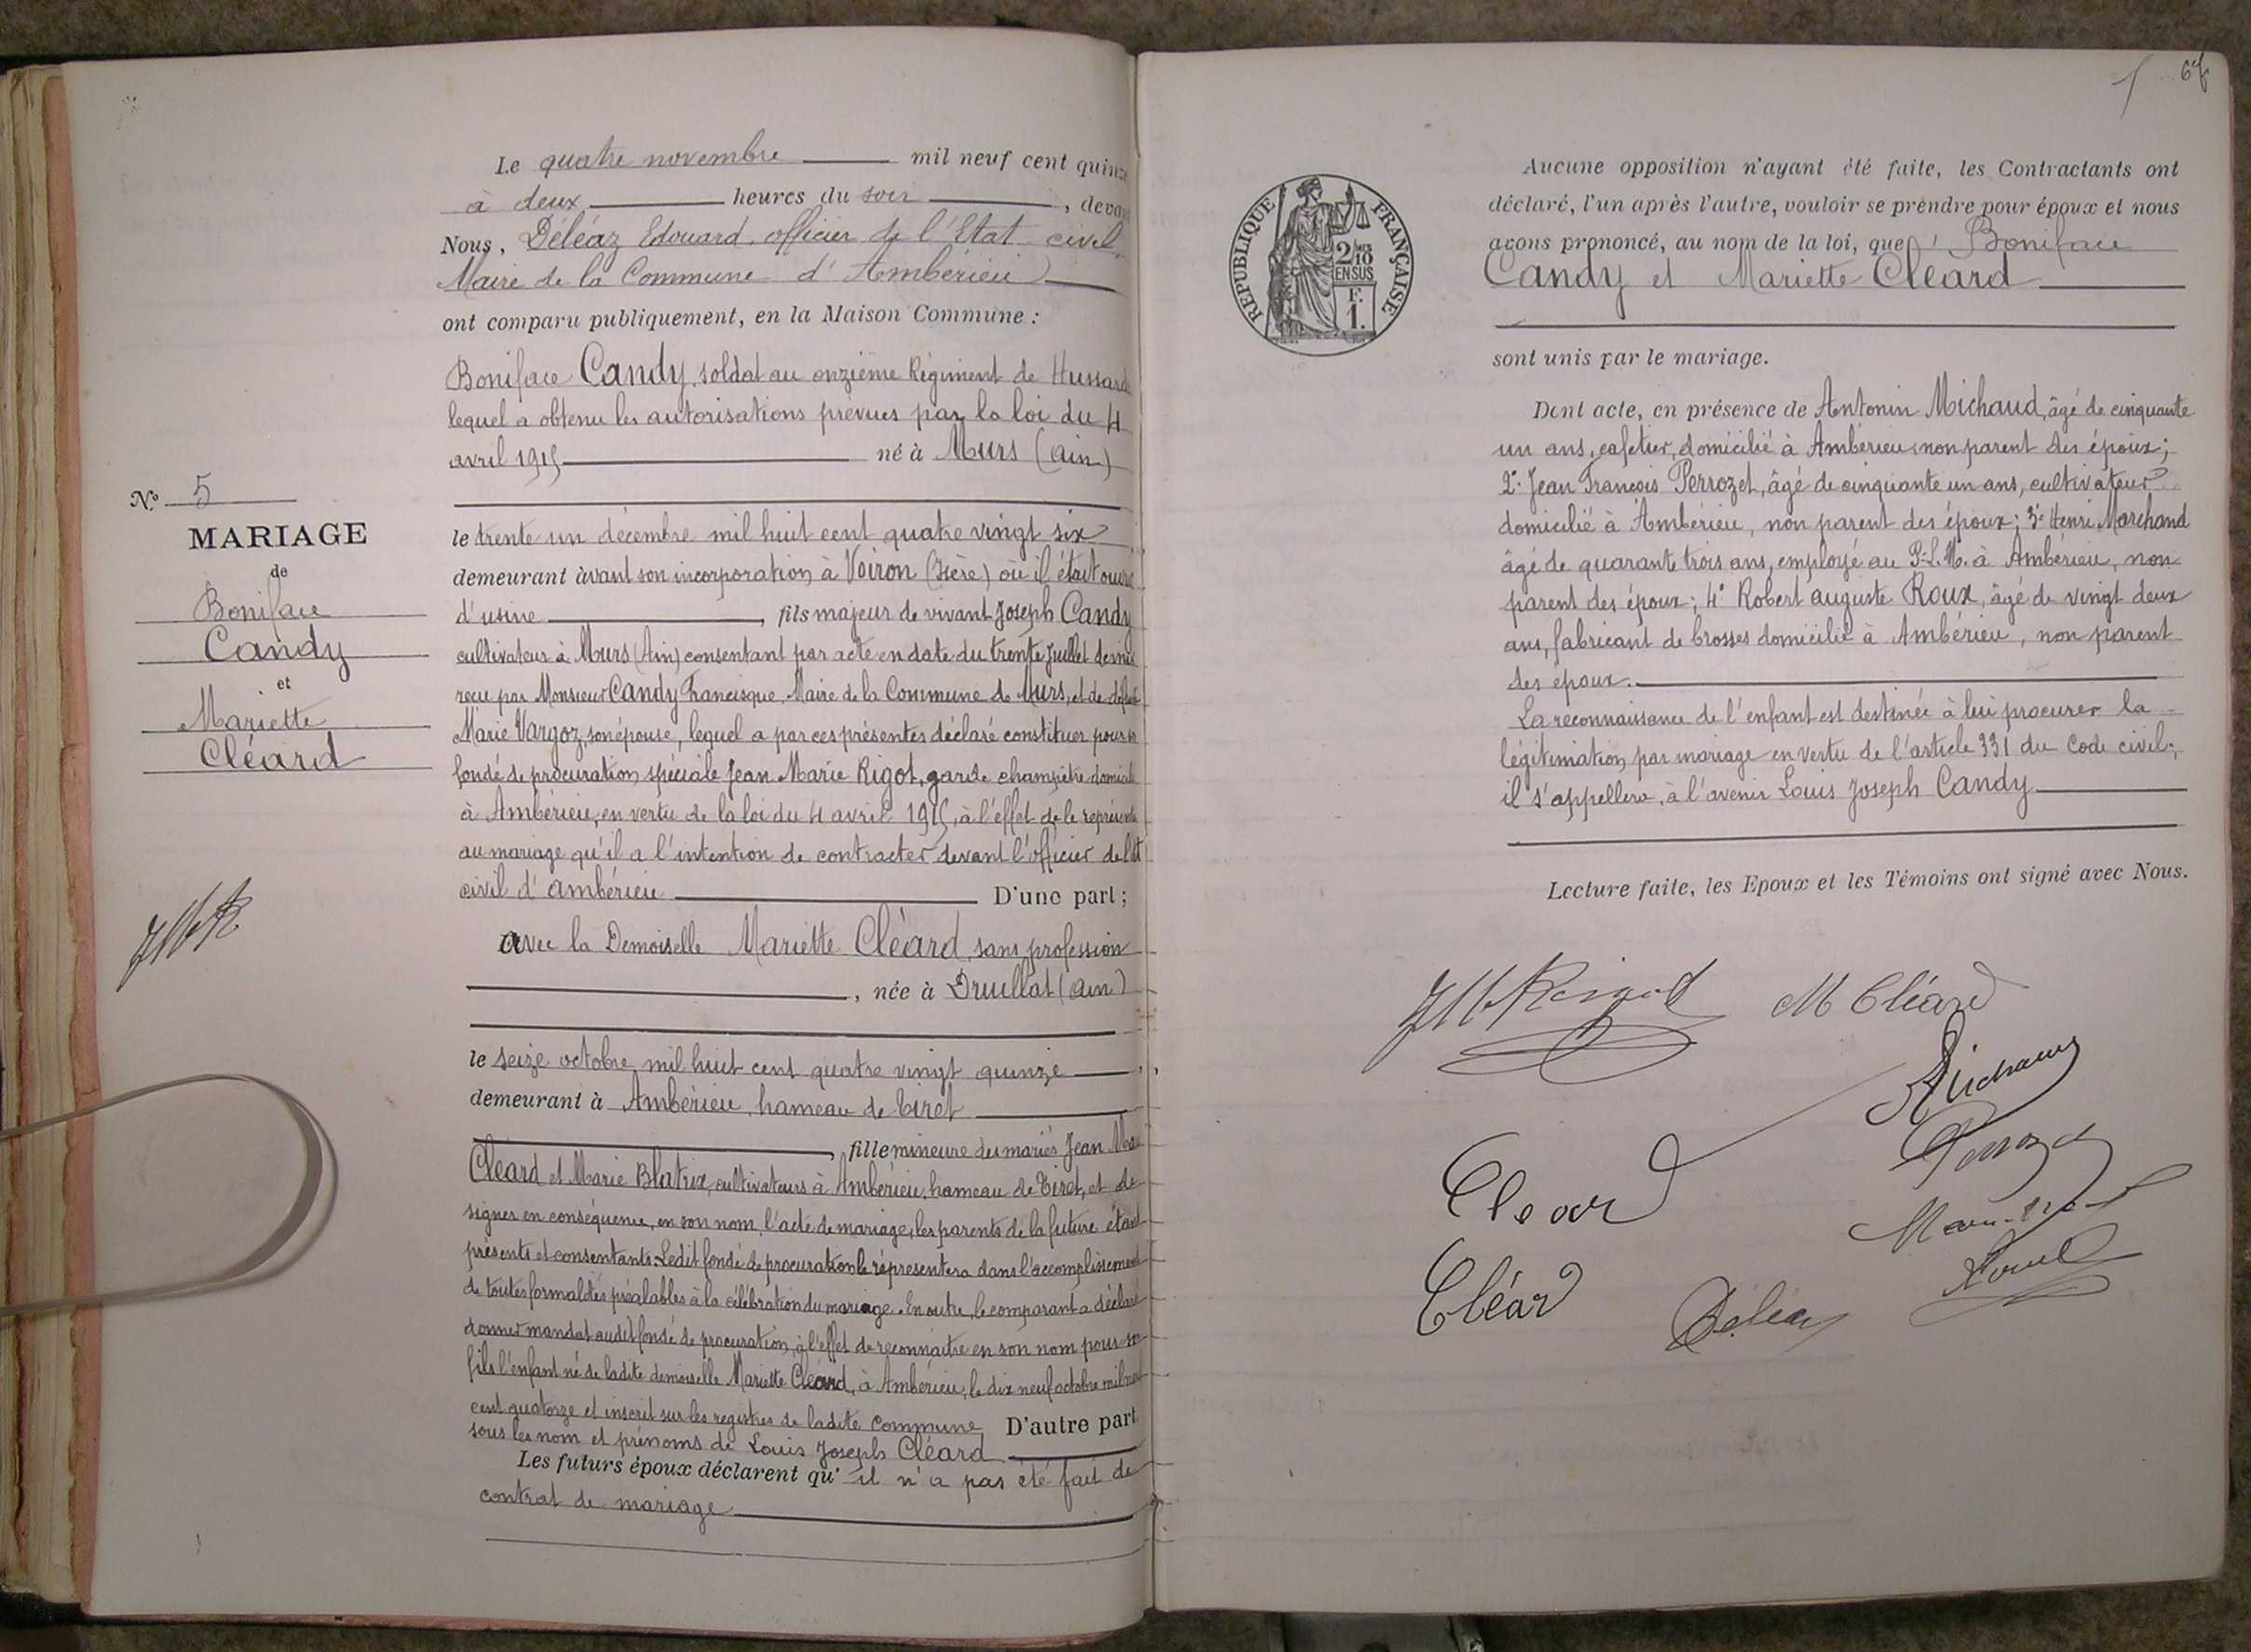 Le quatre novembre mil neuf cent quinze
à deux heures du soir, devant
Nous, Déléaz Edouard, officier de l'Etat civil
Maire de la Commune d'Ambérieu
ont comparu publiquement, en la Maison Commune :
Boniface Candy, soldat au onzième Régiment de Hussards
lequel a obtenu les autorisations prévues par la loi du 4
avril 1915 né à Murs (Ain)
le trente un décembre mil huit cent quatre vingt six
demeurant avant son incorporation à Voiron (Isère) où il était ouvrier
d'usine, fils majeur de vivant Joseph Candy
cultivateur à Murs (Ain) consentant par acte en date du trente Juillet dernier
reçu par Monsieur Candy Francisque, Maire de la Commune de Murs, et de défunte
Marie Vargoz, son épouse, lequel a par ces présentes déclaré constituer pour son
fondé de procuration spéciale Jean Marie Rigot, garde champêtre domicilié
à Ambérieu, en vertu de la loi du 4 avril 1915, à l'effet de le représenter
au mariage qu'il a l'intention de contracter devant l'officier de l'Etat
civil d'Ambérieu D'une part;
avec la Demoiselle Mariette Cléard, sans profession
, née à Druillat (Ain)
le seize octobre mil huit cent quatre vingt quinze
demeurant à Ambérieu, hameau de Tiret
, fille mineure des mariés Jean Marie
Cléard et Marie Blatrix, cultivateurs à Ambérieu, hameau de Tiret, et de
signer en conséquence, en son nom, l'acte de mariage, les parents de la future étant
présents et consentants. Ledit fondé de procuration le représentera dans l'accomplissement
de toutes formalités préalables à la célébration du mariage. En outre, le comparant a déclaré
donner mandat audit fondé de procuration, à l'effet de reconnaître en son nom pour son
fils l'enfant né de ladite demoiselle Mariette Cléard, à Ambérieu, le dix neuf octobre mil neuf
cent quatorze et inscrit sur les registres de ladite commune D'autre part
sous les nom et prénoms de Louis Joseph Cléard
Les futurs époux déclarent qu'il n'a pas été fait de
contrat de mariage
No 5
MARIAGE
de
Boniface
Candy
et
Mariette
Cléard
67
REPUBLIQUE FRANÇAISE
2/10
EN SUS
F.
1.
Aucune opposition n'ayant été faite, les Contractants ont
déclaré, l'un après l'autre, vouloir se prendre pour époux et nous
avons prononcé, au nom de la loi, que Boniface
Candy et Mariette Cléard
sont unis par le mariage.
Dont acte, en présence de Antonin Michaud, âgé de cinquante
un ans, cafetier, domicilié à Ambérieu, non parent des époux;
2° Jean François Perrozet, âgé de cinquante un ans, cultivateur
domicilié à Ambérieu, non parent des époux; 3° Henri Marchand
âgé de quarante trois ans, employé au P.L.M. à Ambérieu, non
parent des époux; 4° Robert auguste Roux, âgé de vingt deux
ans, fabricant de brosses domicilié à Ambérieu, non parent
des époux.
La reconnaissance de l'enfant est destinée à lui procurer la
légitimation par mariage en vertu de l'article 331 du Code civil;
il s'appellera, à l'avenir Louis Joseph Candy
Lecture faite, les Epoux et les Témoins ont signé avec Nous.
JM Rigot M Cléard
AMichaud
Cleard
Perrozet
Marchand
Cléard
Déléaz
Roux